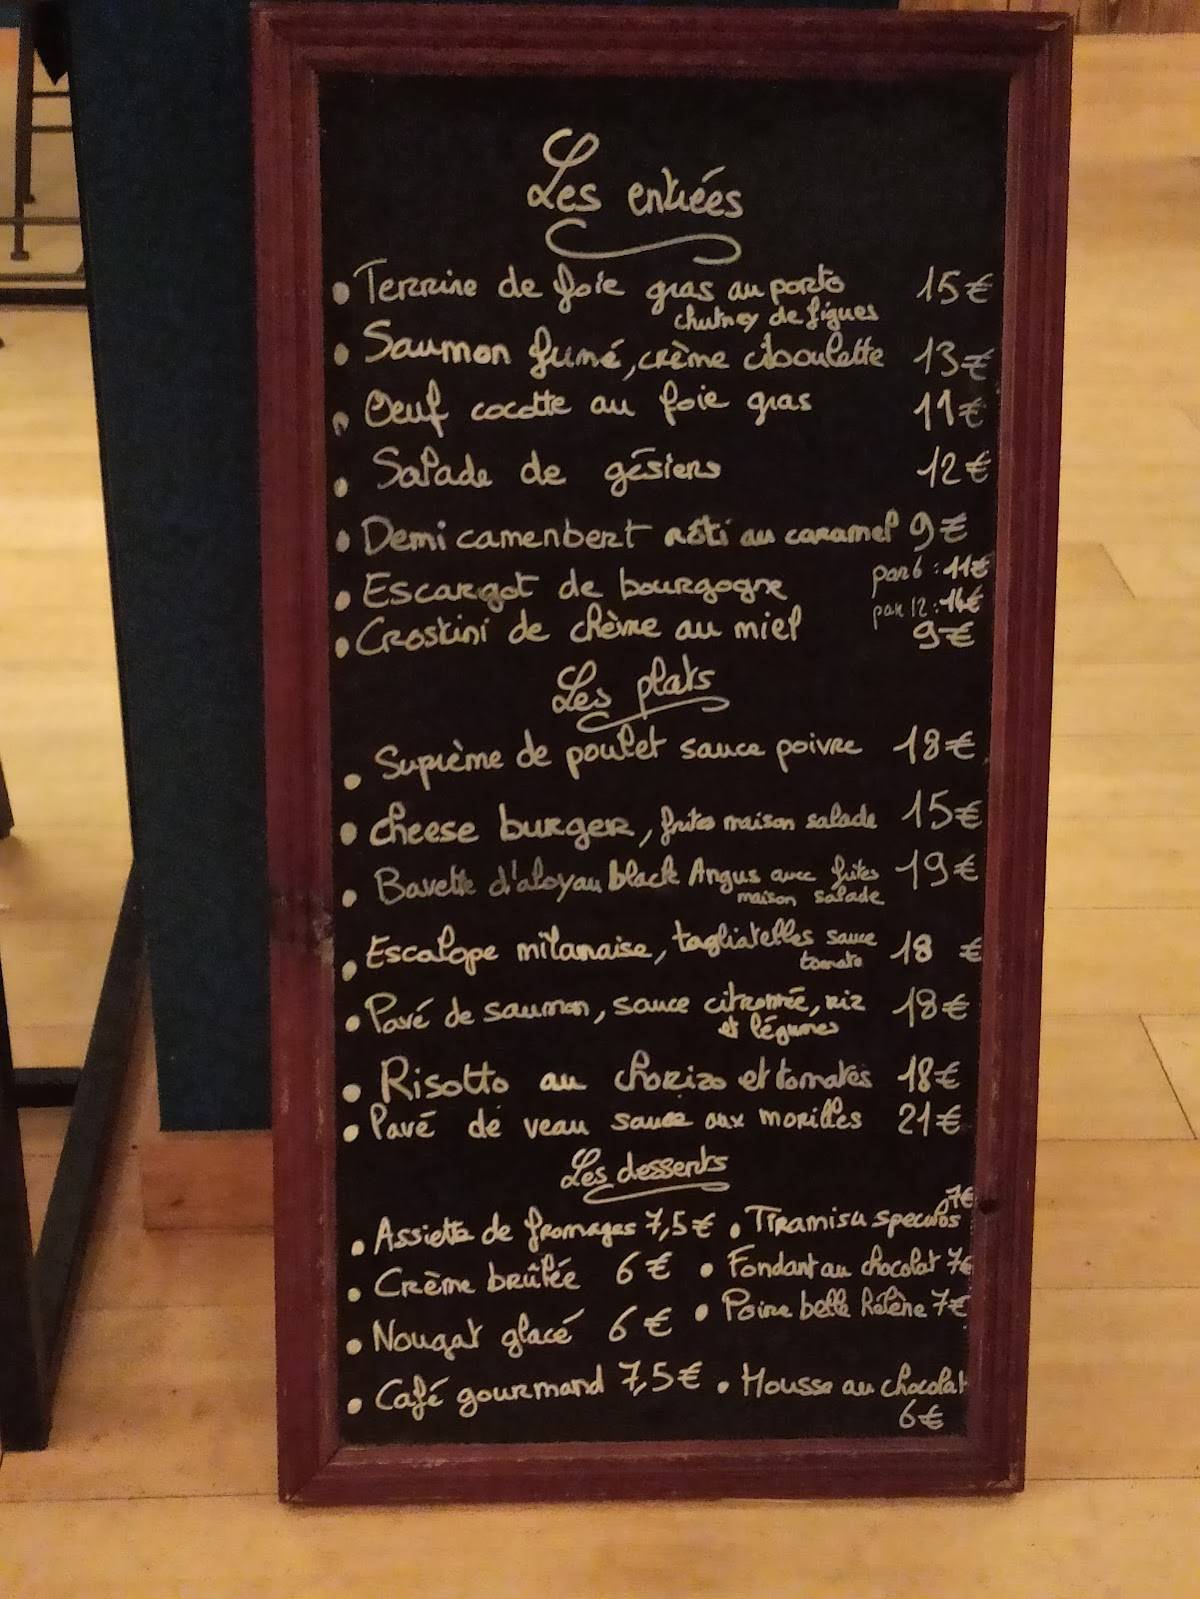 Les entrées
Terrine de foie gras au porto 15€
chutney de figues
Saumon fumé, crème ciboulette 13€
Oeuf cocotte au foie gras 11€
Salade de gésiers 12€
Demi camenbert rôti au caramel 9€
Escargot de bourgogne par 6 : 11€
par 12 :
Crostini de chèvre au miel 9€
Les plats
Suprème de poulet sauce poivre 18€
cheese burger, frites maison salade 15€
Bavette d'aloyau black Angus avec frites 19€
maison salade
Escalope milanaise, tagliatelles sauce 18 €
tomate
Pavé de saumon, sauce citronnée, riz 18€
et légumes
Risotto au chorizo et tomates 18€
Pavé de veau sauce aux morilles 21€
Les desserts
Assiette de fromages 7,5€ Tiramisu speculos 7€
Crème brûlée 6€ Fondant au chocolat 7€
Nougat glacé 6€ Poire belle hélène 7€
Café gourmand 7,5€ Mousse au chocolat
6€